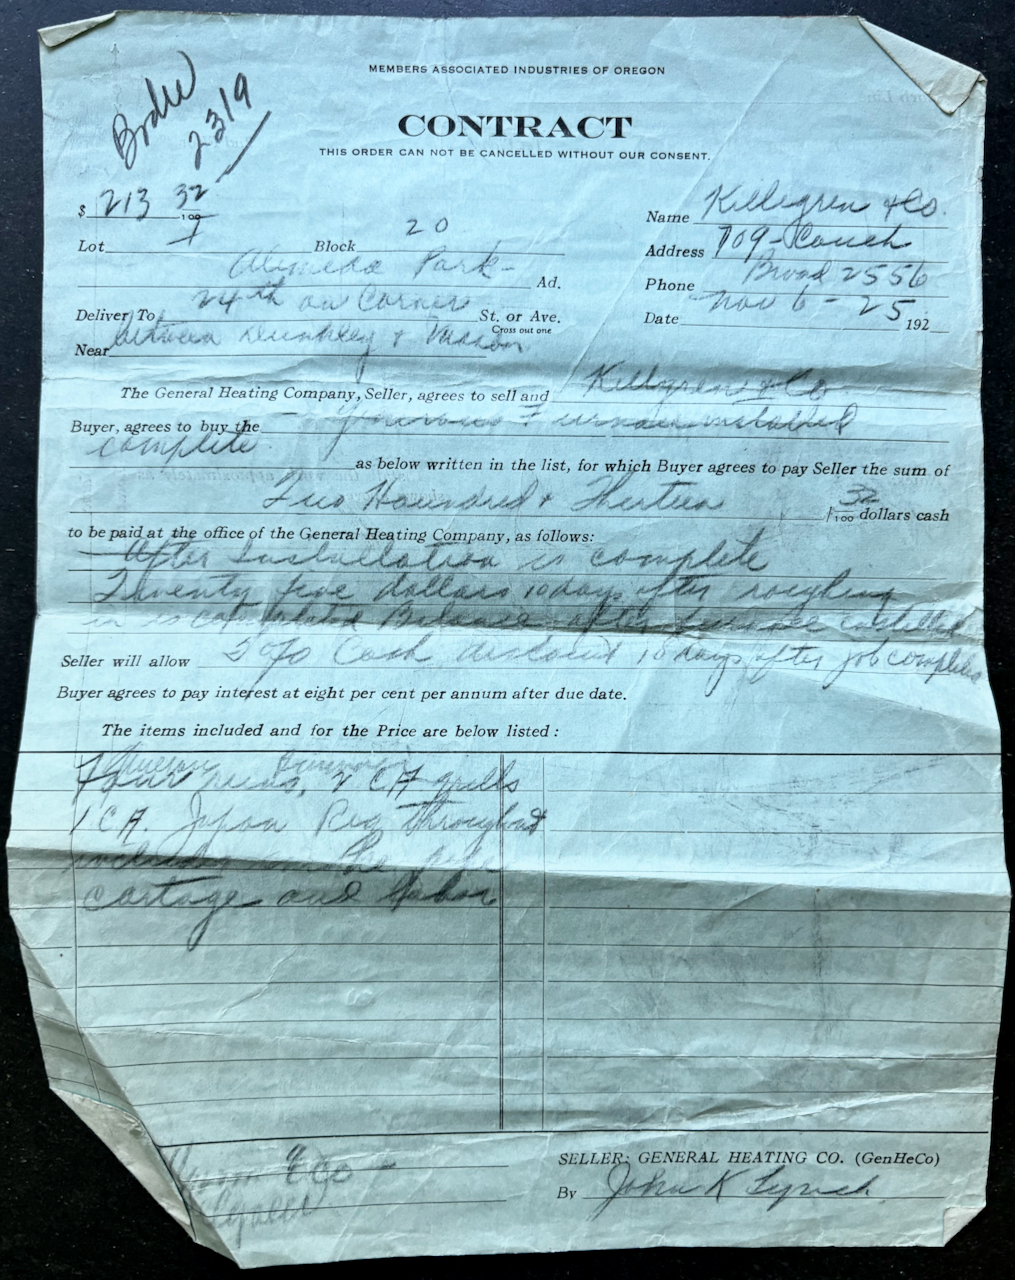 MEMBERS ASSOCIATED INDUSTRIES OF OREGON
2319
CONTRACT
THIS ORDER CAN NOT BE CANCELLED WITHOUT OUR CONSENT.
$ 213 32/100
Name Killgren & Co.
Lot 1 Block 20
Address 709 - Couch
Alimeda Park - Ad.
Phone Broad 2556
Deliver To 24th on Corner St. or Ave.
Cross out one
Date Nov 6 - 25 192
Near between & Mason
The General Heating Company, Seller, agrees to sell and Killgren & Co
Buyer, agrees to buy the installed
complete as below written in the list, for which Buyer agrees to pay Seller the sum of
Two Houndred & Thirteen 32/100 dollars cash
to be paid at the office of the General Heating Company, as follows:
After Installation is complete
Twenty five dollars 10 days after roughing
in is Balance after installed
Seller will allow 5% Cash discount 10 days after job complete
Buyer agrees to pay interest at eight per cent per annum after due date.
The items included and for the Price are below listed:
Four 2 C.A. grills
1 C.A. Japan Reg throughout
cartage and labor
& Co
SELLER: GENERAL HEATING CO. (GenHeCo)
By John K Lynch